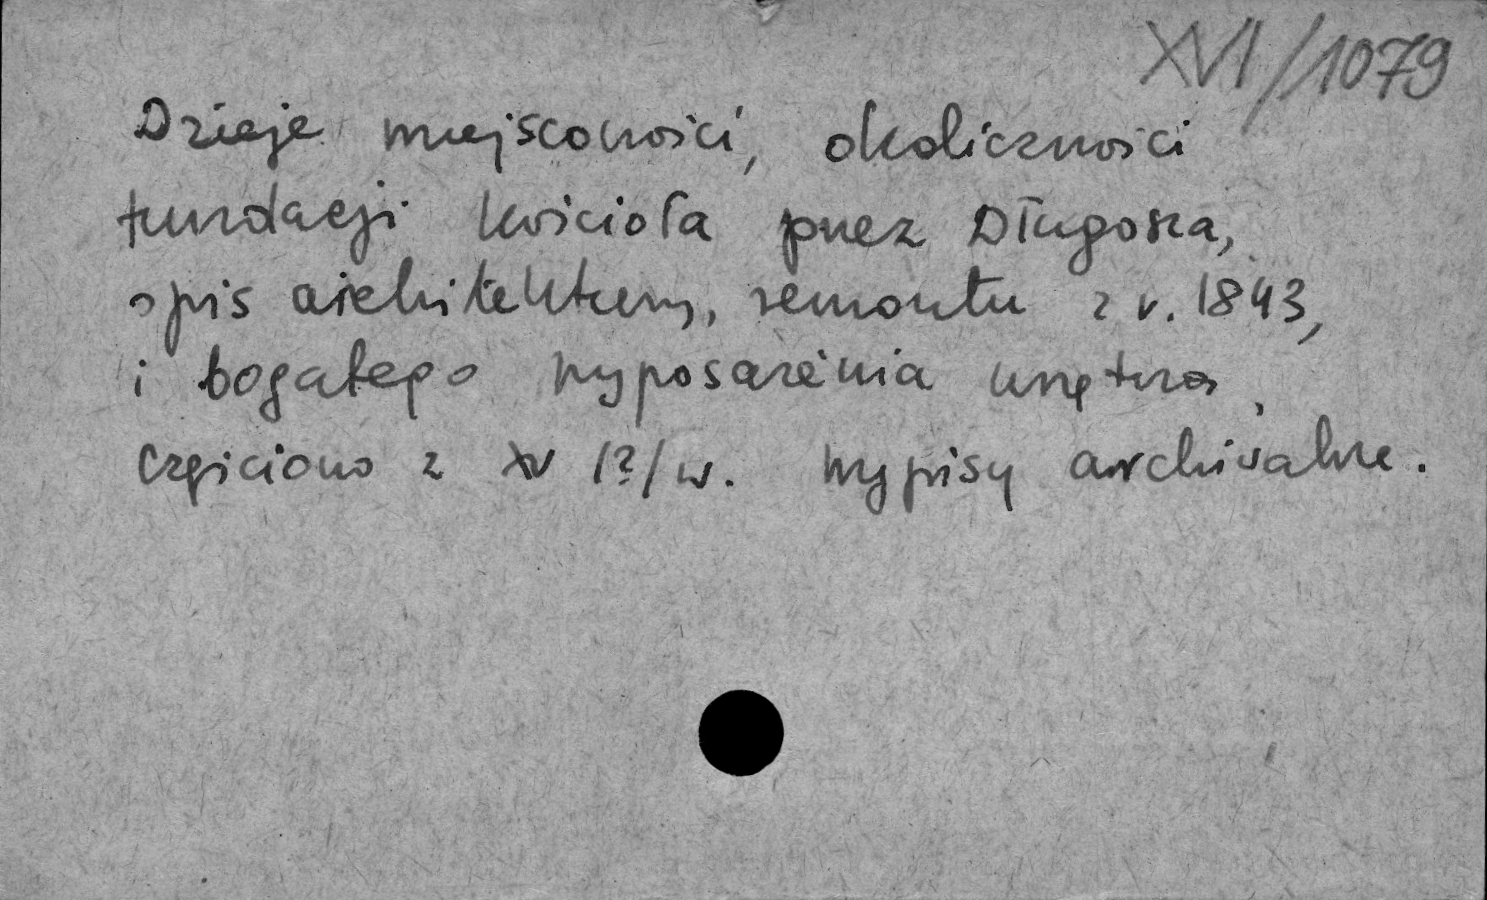 XVI/1079
Dzieje miejscowości, okoliczności
fundacji kościoła przez Długosza,
opis architektury, remontu z r. 1843,
i bogatego wyposażenia wnętrza,
częściowo z XV /?/ w. Wypisy archiwalne.